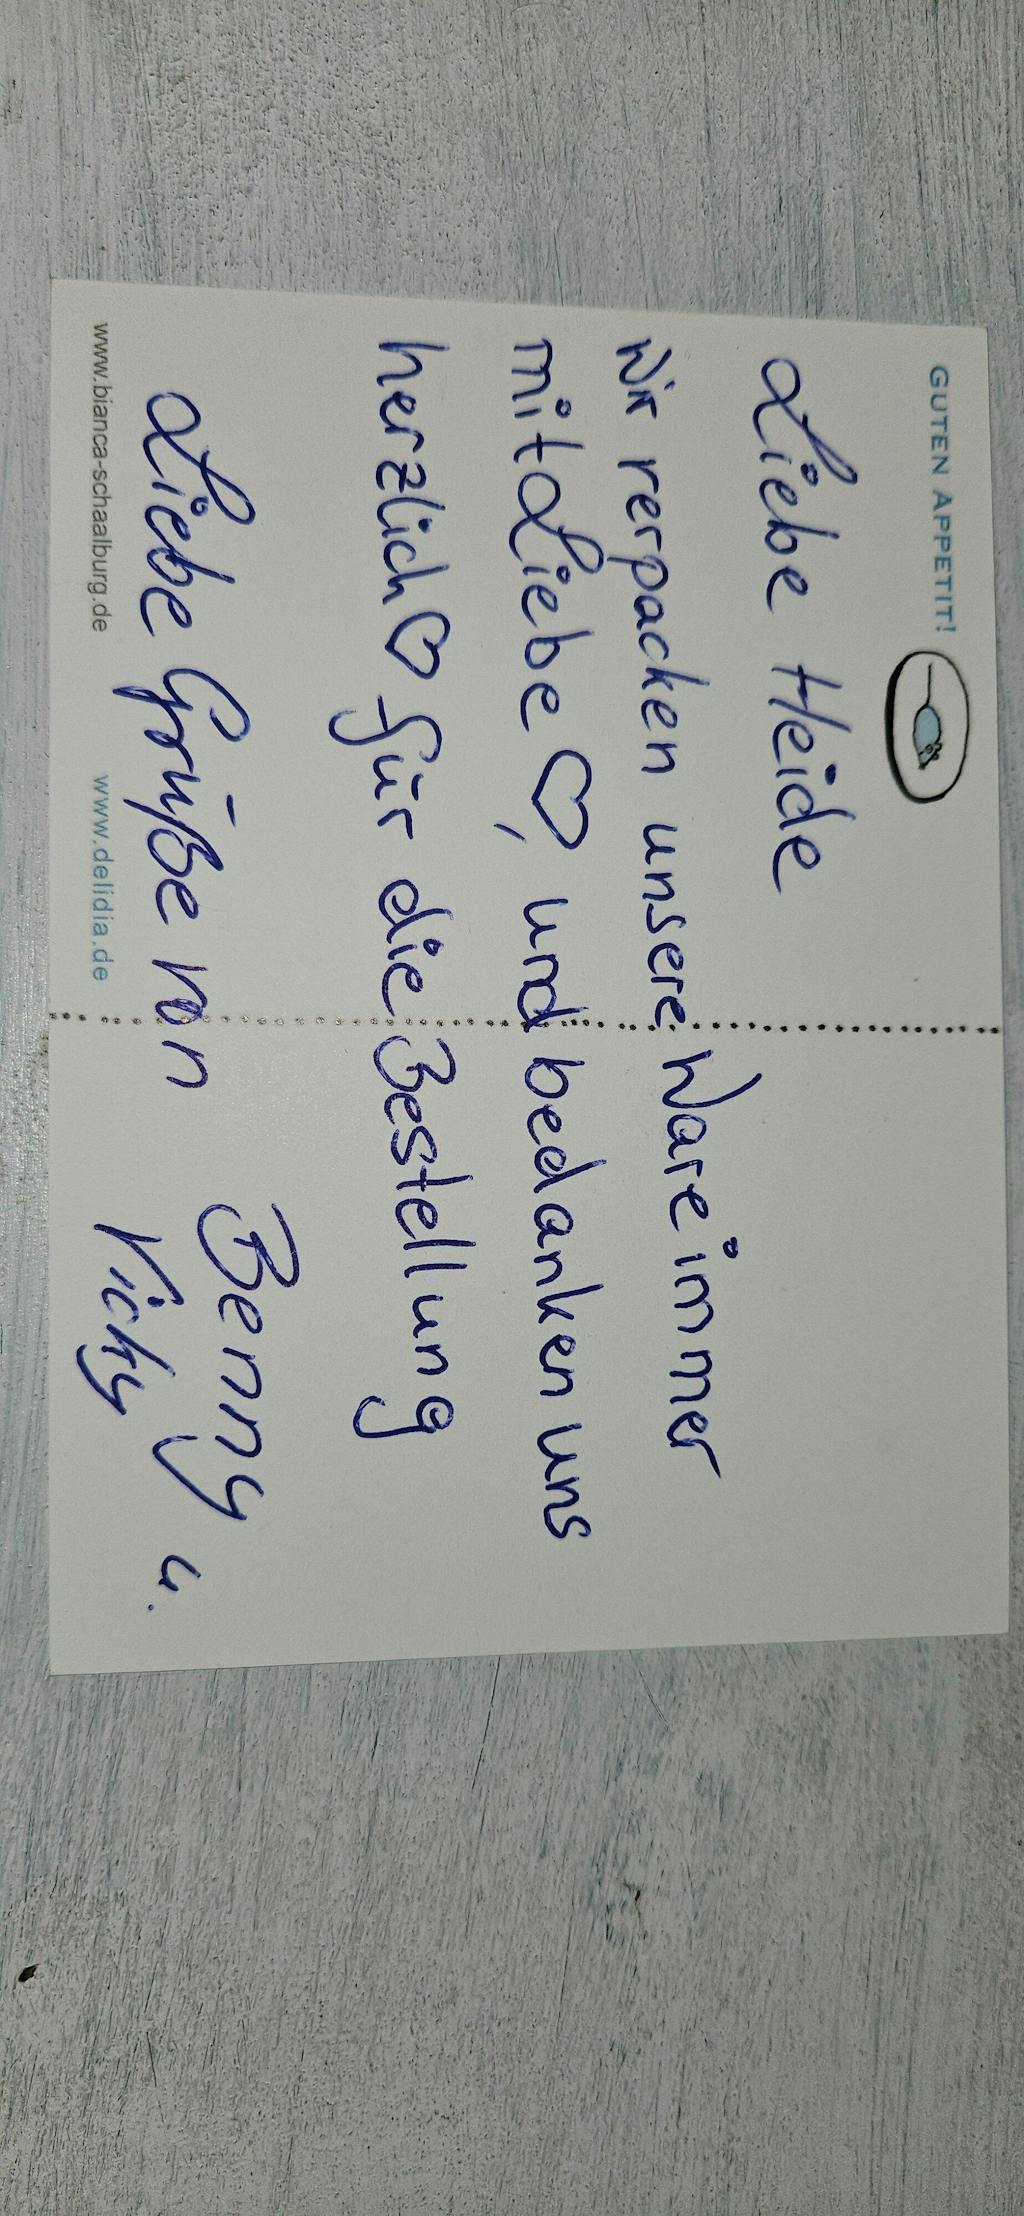 GUTEN APPETIT!
Liebe Heide
wir verpacken unsere Ware immer
mit Liebe ♡, und bedanken uns
herzlich ♡ für die Bestellung
Liebe Grüße von Benny u.
Vicky
www.bianca-schaalburg.de www.delidia.de